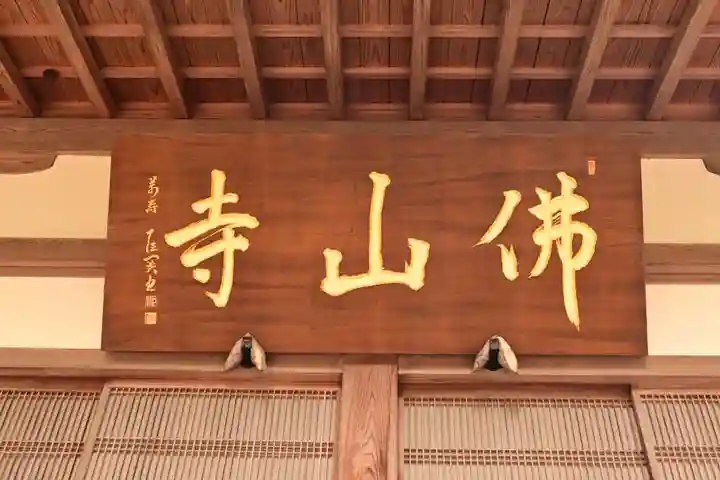 佛山寺
萬壽